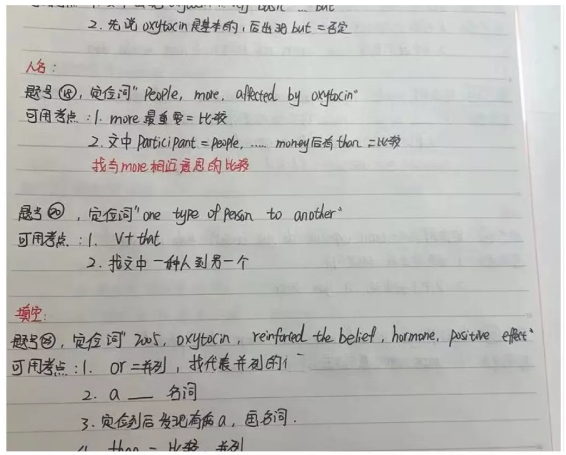 but
2. 先说 oxytocin 是基本的，后出现 but = 否定
人名：
题号⑱，定位词" people, more, affected by oxytocin"
可用考点：1. more 最重要 = 比较
2. 文中 participant = people, ..... money后有 than = 比较
找与more相近意思的比较
题号⑳，定位词"one type of person to another"
可用考点：1. V+ that
2. 找文中一种人到另一个
填空：
定位词" 2005, oxytocin, reinforced the belief, hormone, positive effect"
可用考点：1. or = 并列，找代表并列的
2. a ___ 名词
3. 定位到后发现有两a，因名词.
4. than = 比较 并列